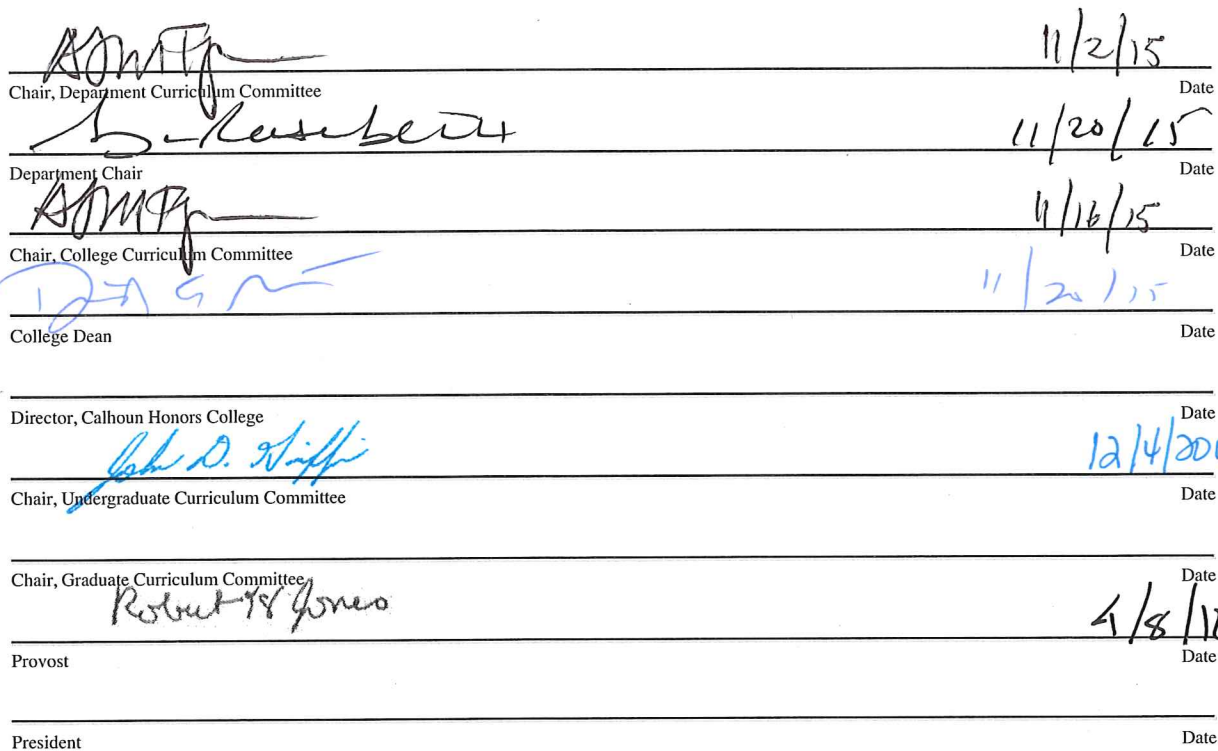 11/2/15
Chair, Department Curriculum Committee Date
11/20/15
Department Chair Date
11/16/15
Chair, College Curriculum Committee Date
11/20/15
College Dean Date
Director, Calhoun Honors College Date
John D. 12/4/201
Chair, Undergraduate Curriculum Committee Date
Chair, Graduate Curriculum Committee Date
Robert Jones 4/8/1
Provost Date
President Date